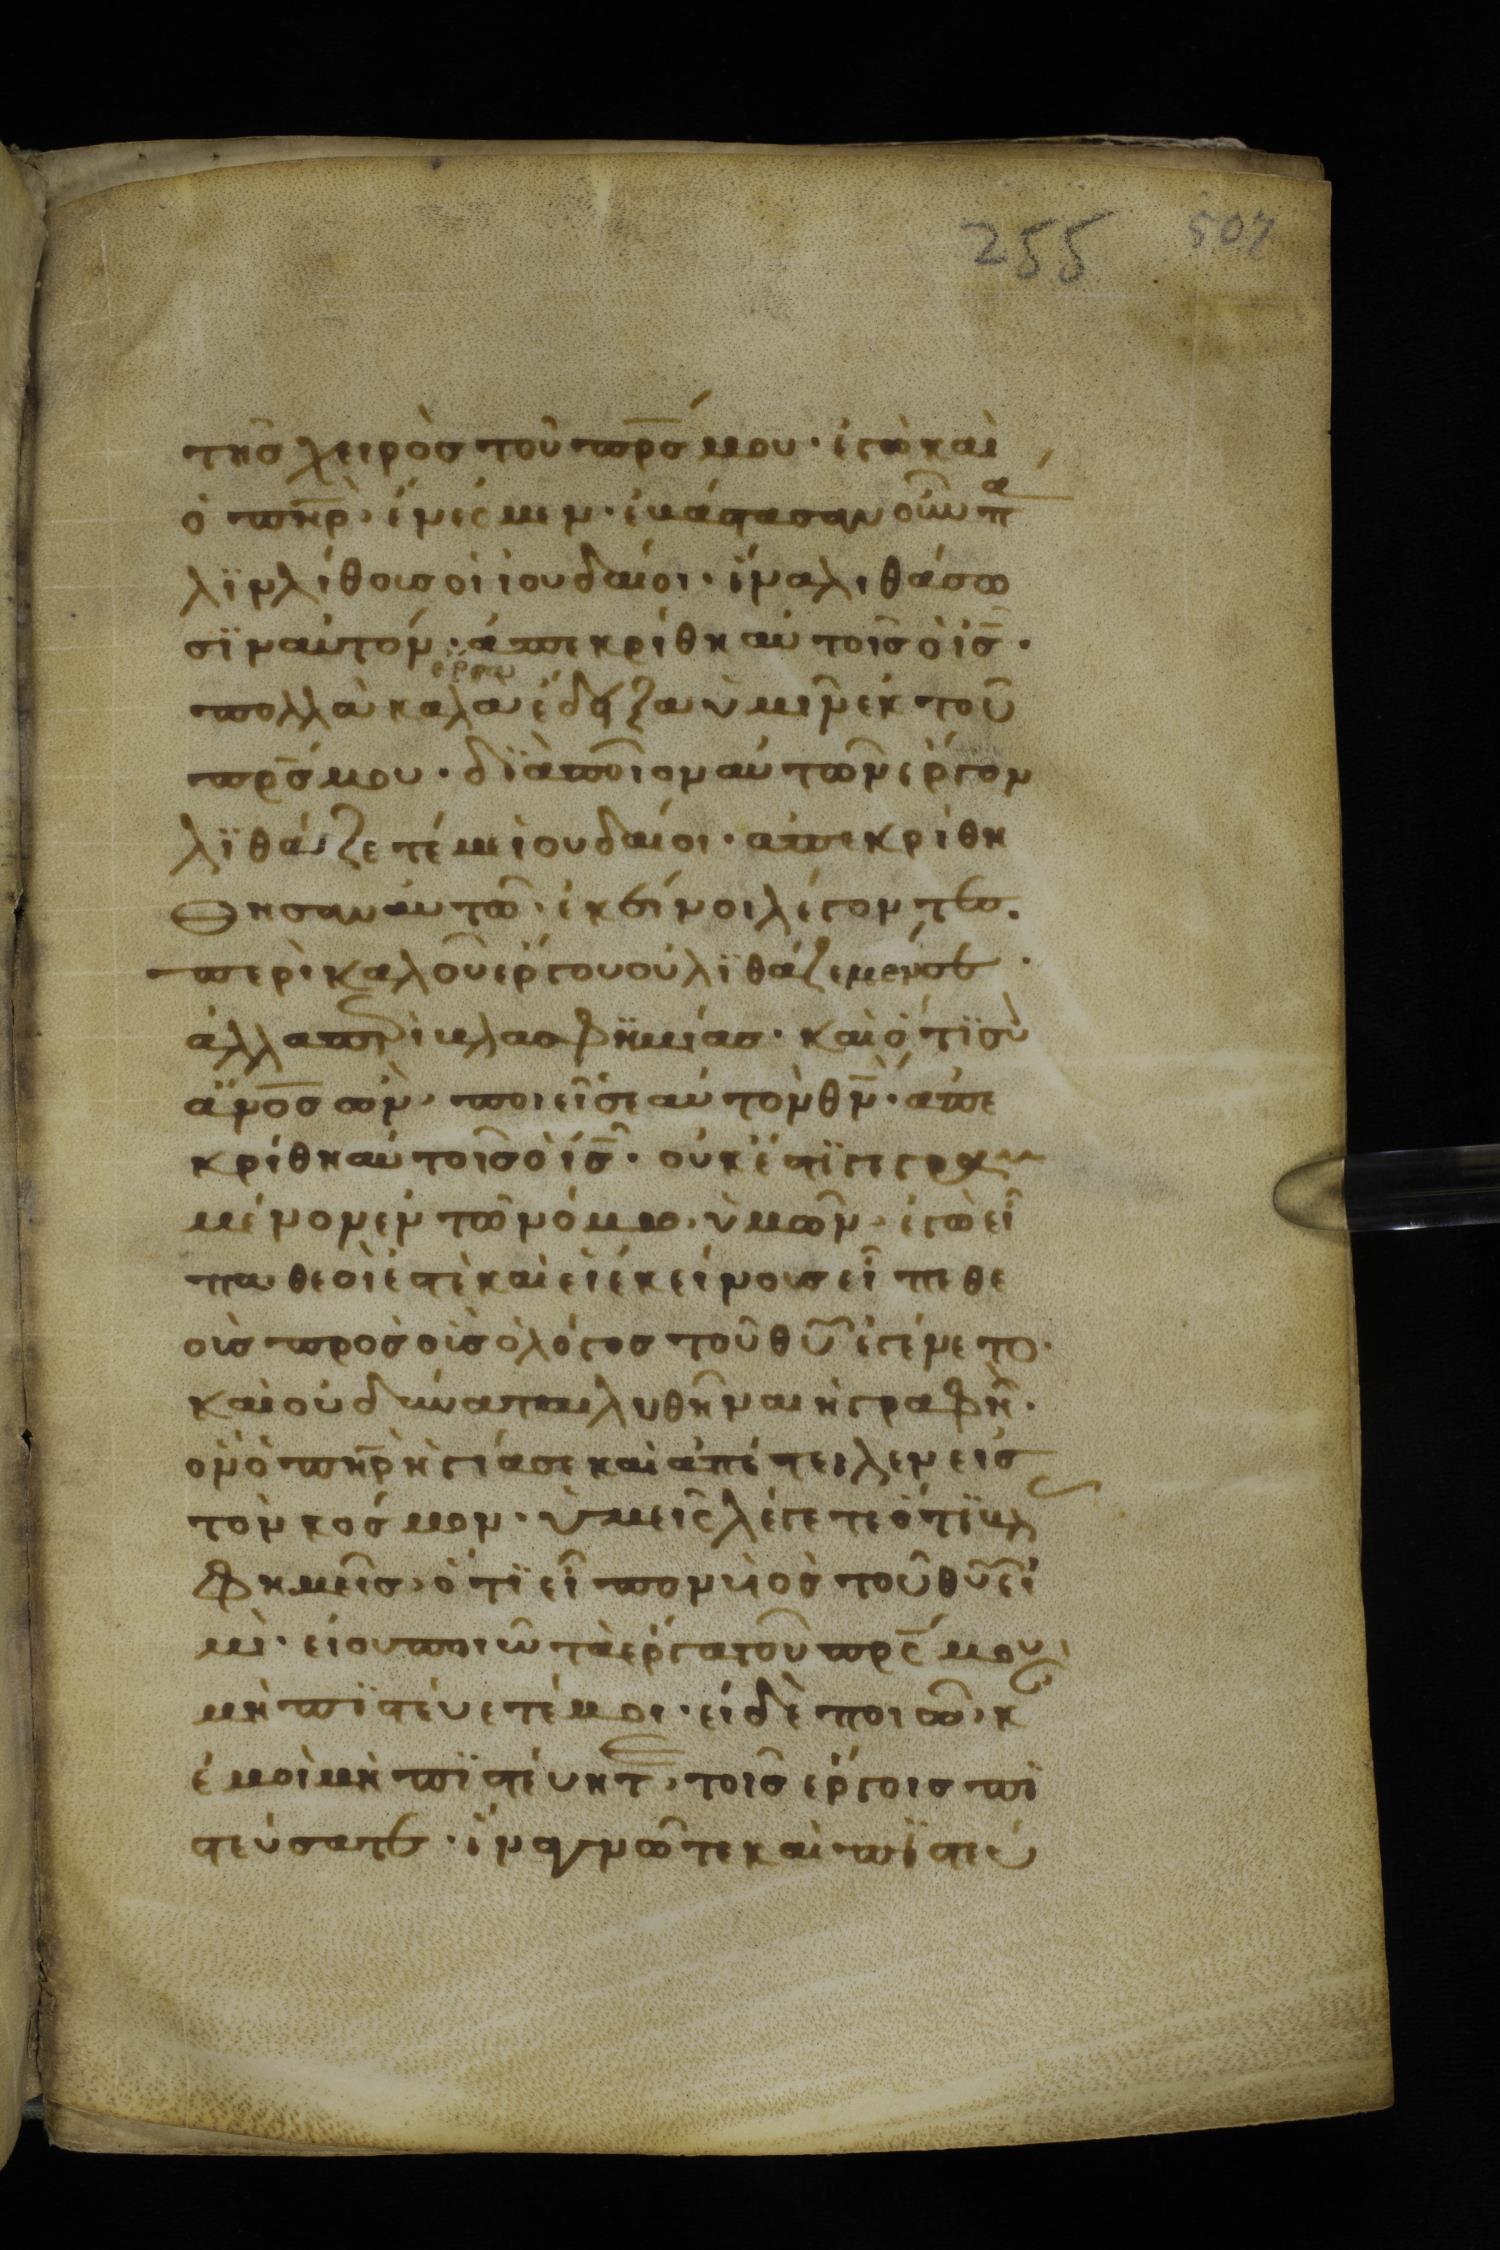 255 507
τῆς χειρὸς τοῦ πρ̅ς μου· ἐγὼ καὶ
ὁ πηρ̅· ἕν ἐσμεν· ἐβάστασαν οὖν πα
λϊν λίθους οἱ ἰουδαίοι· ἵνα λιθάσω
σϊν αὐτόν· ἀπεκρίθη αὐτοῖς ὁ ἰς̅·
ἔργα
πολλὰ καλὰ ἔδειξα ὑμῖν ἐκ τοῦ
πρ̅ς μου· δϊὰ ποῖον αὐτῶν ἔργον
λϊθάζετέ με ἰουδαίοι· ἀπεκρίθη
θησαν αὐτῶ· ἐκεῖνοι λέγοντες·
περὶ καλοῦ ἔργου οὐ λϊθάζομέν σε·
ἀλλα περὶ βλασφημίας· καὶ ὅτϊ σὺ
ἄν̅ος ὢν· ποιεῖς ἑαυτὸν θν̅· ἀπε
κρίθη αὐτοῖς ὁ ἰς̅· οὐκ ἔστϊ γεγραμ
μένον ἐν τῶ νόμω ὑμῶν· ἐγὼ εἶ
πα θεοί ἐστὲ καὶ εἰ ἐκείνους εἶπε θε
οὺς πρὸς οὓς ὁ λόγος τοῦ θυ̅ ἐγένετο·
καὶ οὐ δύναται λυθῆναι ἡ γραφή·
ὃν ὁ πηρ̅ ἡγίασε καὶ ἀπέστειλεν εἰς
τὸν κόσμον· ὑμεῖς λέγετε ὅτϊ βλασ
φημεῖς· ὅτϊ εἶπον υἱὸς τοῦ θυ̅ εἰ
μὶ· εἰ ου ποιῶ τὰ ἔργα τοῦ πρ̅ς μου
μὴ πϊστεύετέ μοι· εἰ δὲ ποιῶ, κ
ἐμοὶ μὴ πϊστεύητε, τοῖς ἔργοις πϊ
στεύσατε· ἵνα γνῶτε καὶ πϊστεύ